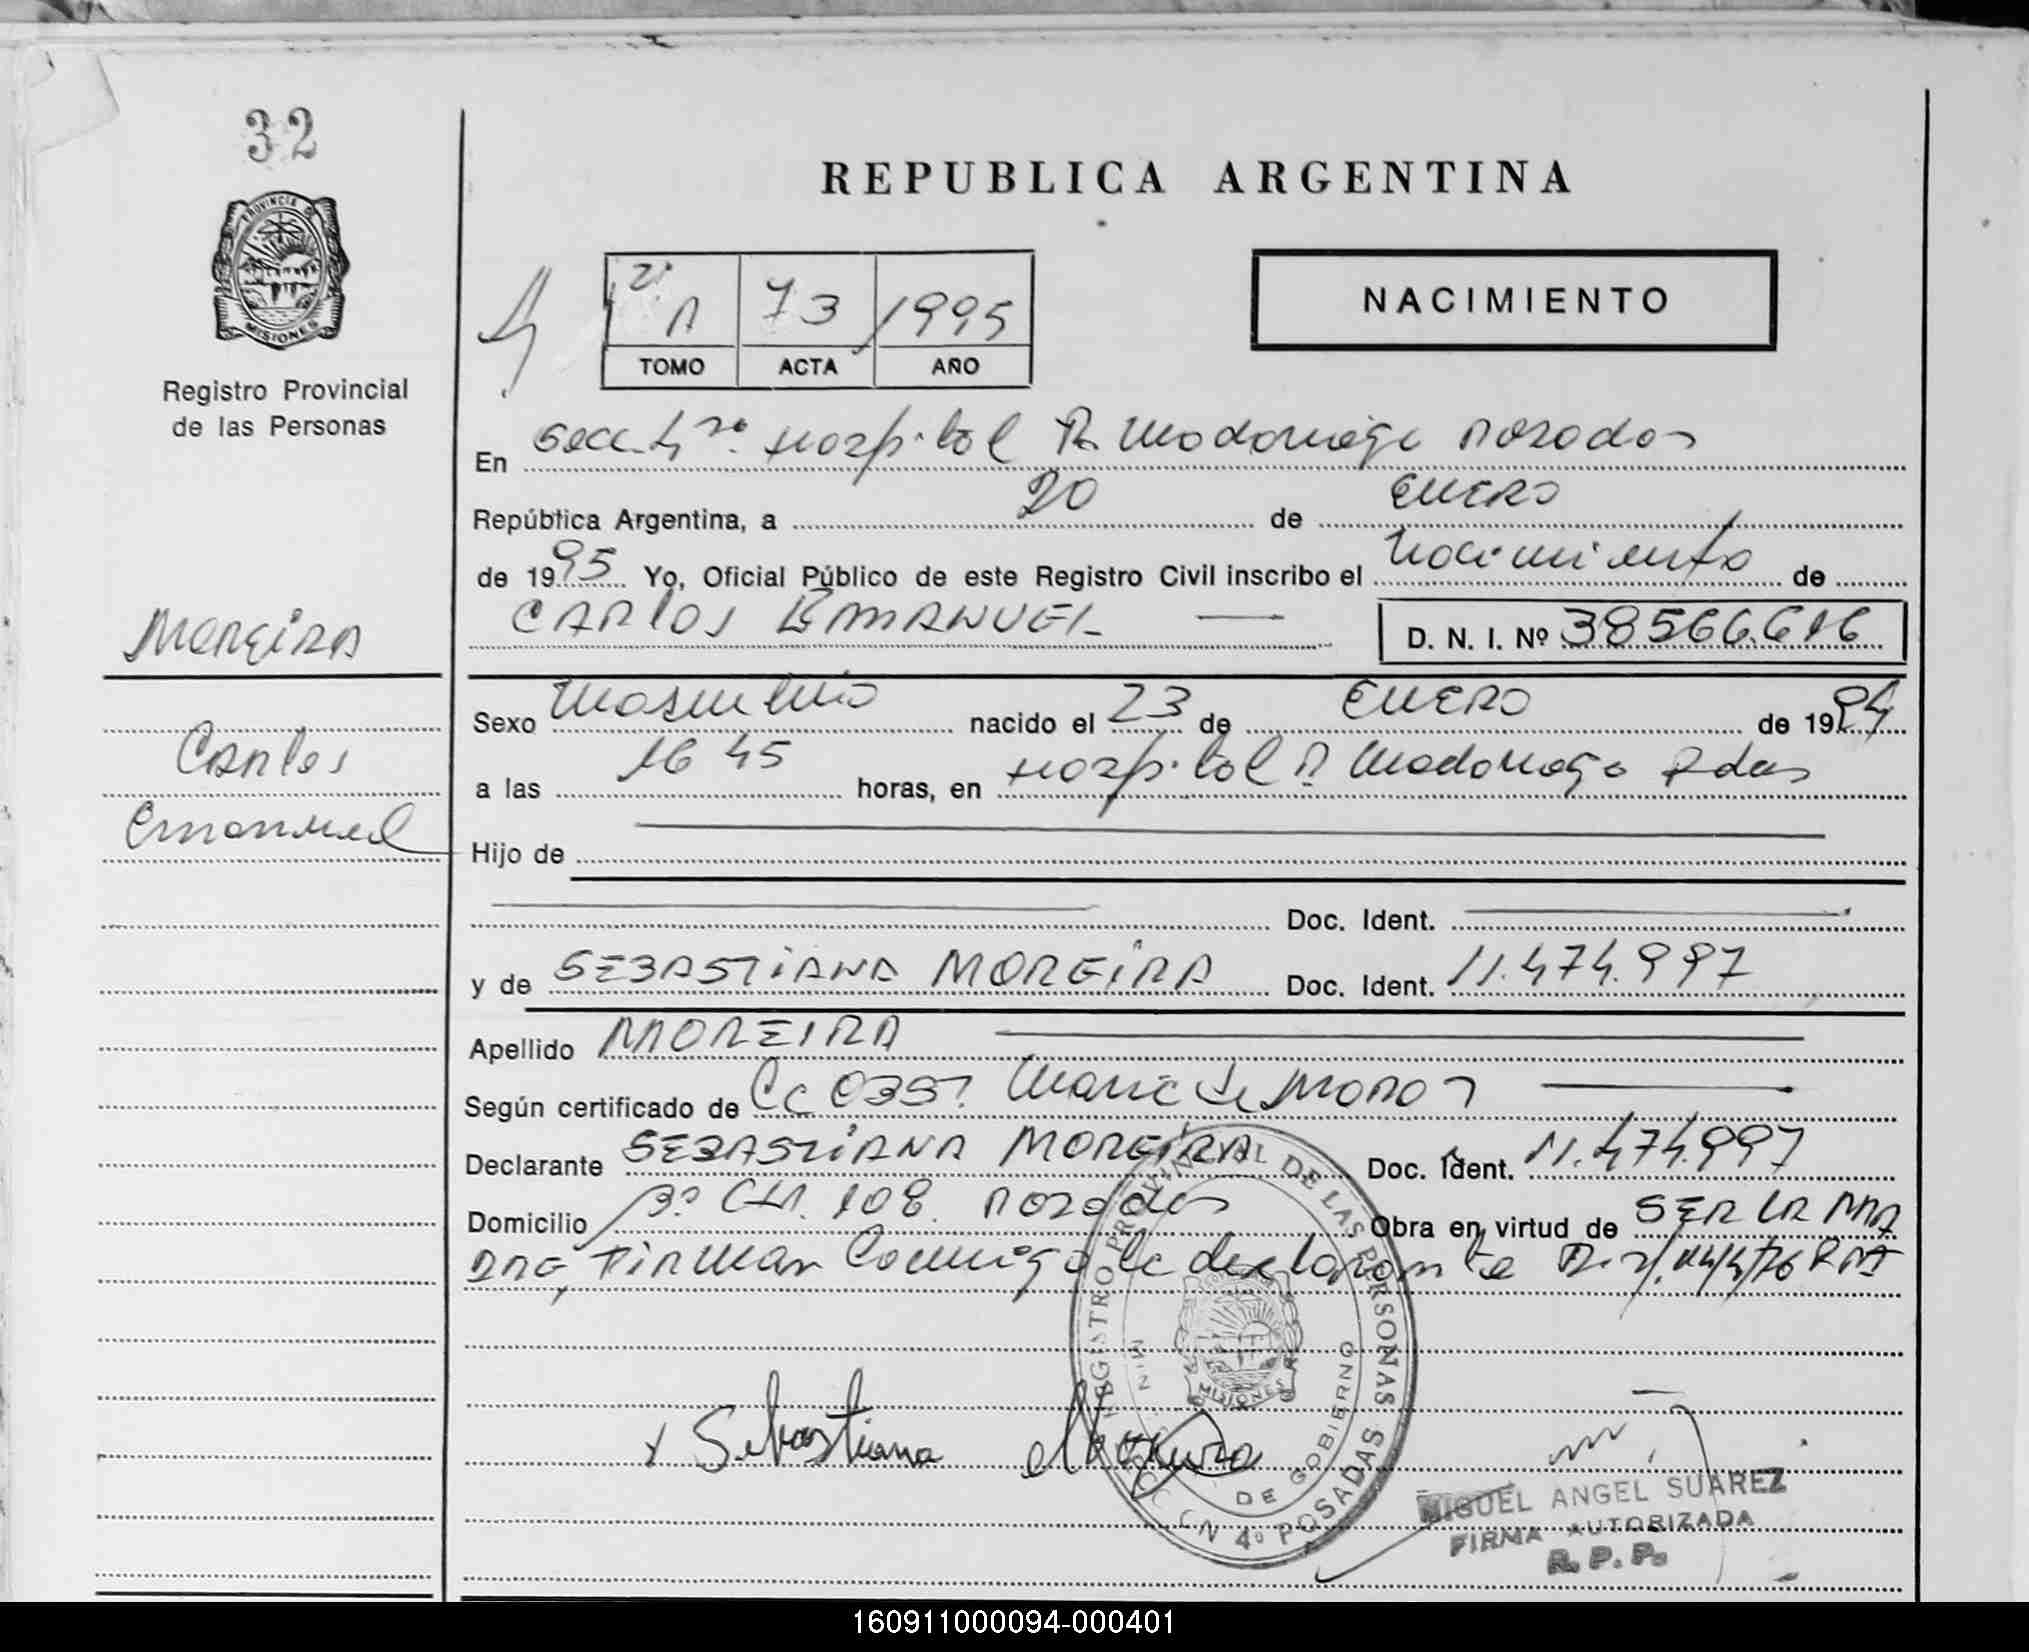 32
PROVINCIA DE
MISIONES
Registro Provincial
de las Personas
REPUBLICA ARGENTINA
A 73 1995
TOMO ACTA AÑO
NACIMIENTO
En Secc. 4 Hospital R. Madariaga Posadas
República Argentina, a 20 de ENERO
de 1995 Yo, Oficial Público de este Registro Civil inscribo el nacimiento de
CARLOS EMANUEL D. N. I. Nº 38566.616
MOREIRA
Carlos
Emanuel
Sexo Masculino nacido el 23 de ENERO de 1994
a las 16 45 horas, en Hospital R. Madariaga Pdas
Hijo de
Doc. Ident.
y de SEBASTIANA MOREIRA Doc. Ident. 11.474.997
Apellido MOREIRA
Según certificado de Obst. Maria
Declarante SEBASTIANA MOREIRA Doc. Ident. 11.474.997
Domicilio 108 Posadas Obra en virtud de SER LA MA
DRE, Firman Conmigo la declarante
REGISTRO PROVINCIAL DE LAS PERSONAS
MISIONES
DE GOBIERNO
4º POSADAS
x Sebastiana Moreira
MIGUEL ANGEL SUAREZ
FIRMA AUTORIZADA
R. P. P.
160911000094-000401